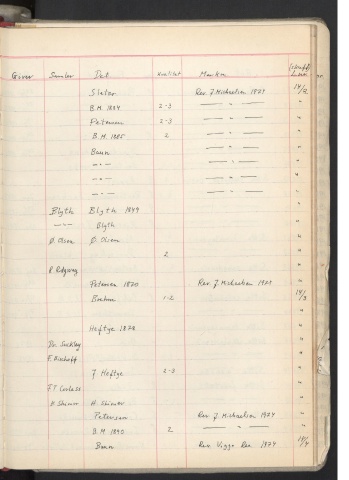 Giver Samler Det. Kvalitet Merkn.
Rev. J. Michaelsen 1974 14/2
B.M. 1884 2-3 — " —
Petersen 2-3 — " —
B.M. 1885 2 — " —
Baun — " —
— " — — " —
— " — — " —
— " — — " —
Blyth Blyth 1849
— " — Blyth
Ø. Olsen Ø. Olsen
2
R. Ridgway
Petersen 1870 Rev. J. Michaelsen 1974
Brehm 1-2 14/3
Heftye 1872
Dr. Suckley
F. Bischoff
J Heftye 2-3
F. T. Corless
H. Skinner H. Skinner
Petersen Rev. J. Michaelsen 1974
B.M. 1840 2 — " —
Baun Rev. Viggo Ree 1974